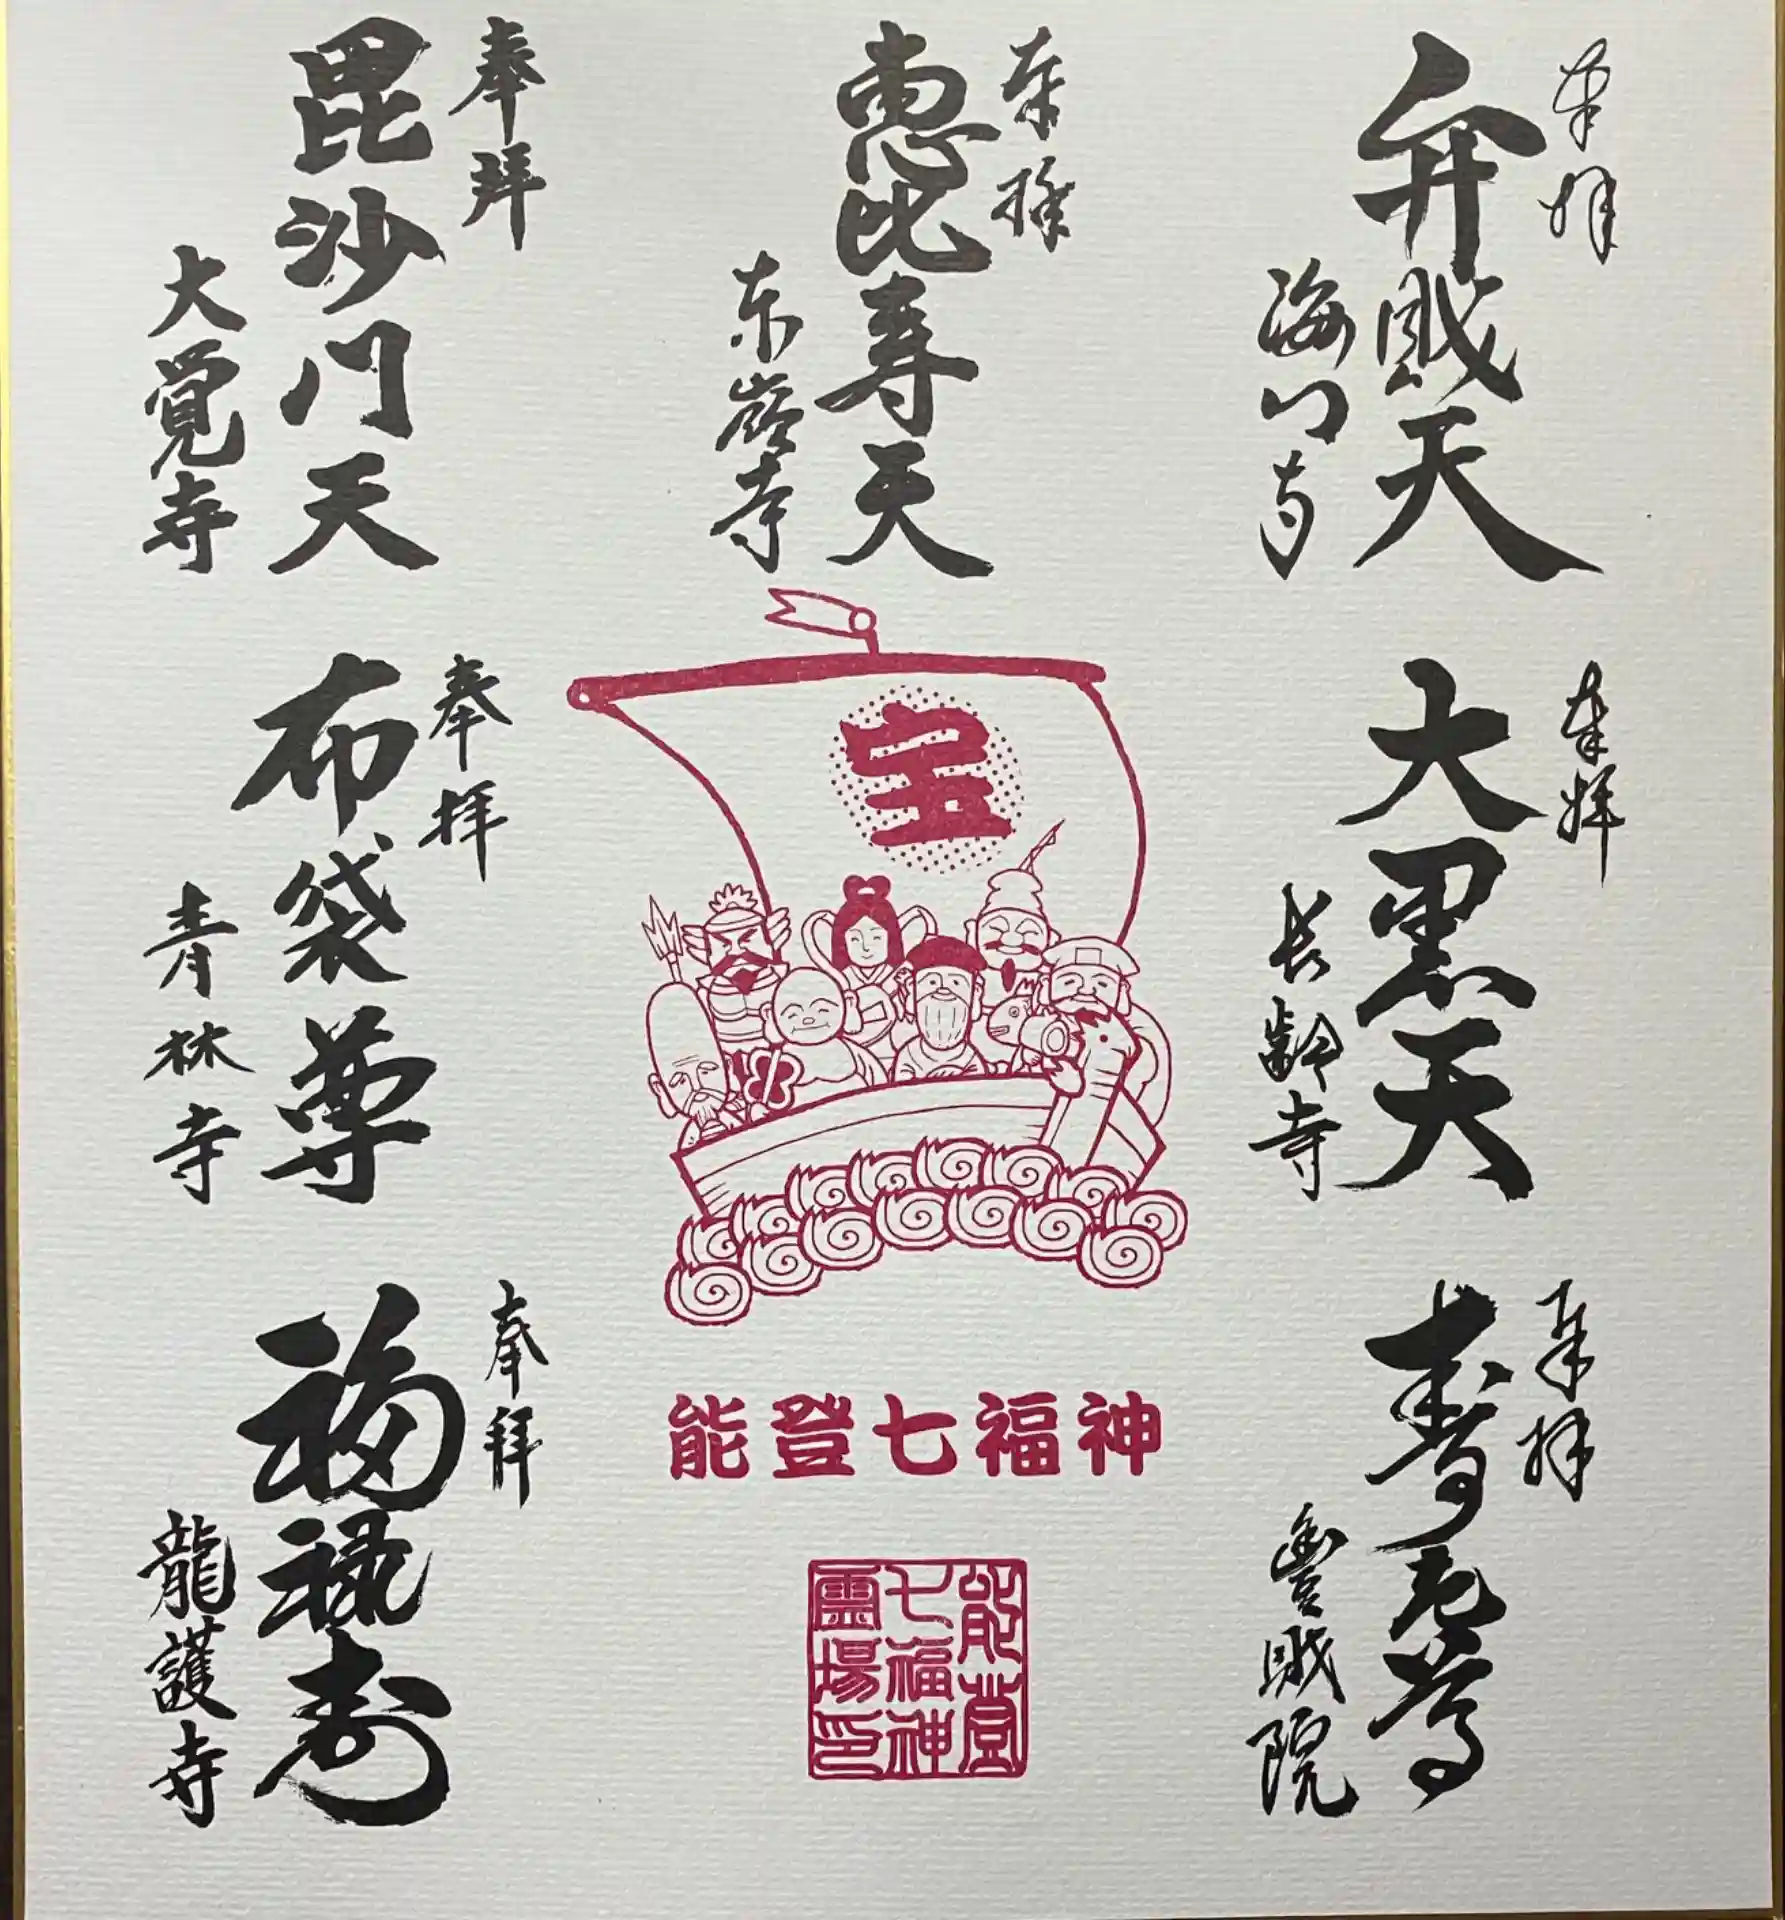 奉拝
弁財天
海門寺
奉拝
恵比寿天
东嶺寺
奉拝
毘沙门天
大覚寺
奉拝
大黒天
长齢寺
宝
奉拝
布袋尊
青林寺
奉拝
寿老尊
豊財院
奉拝
福禄寿
龍護寺
能登七福神
能登
七福神
霊場印